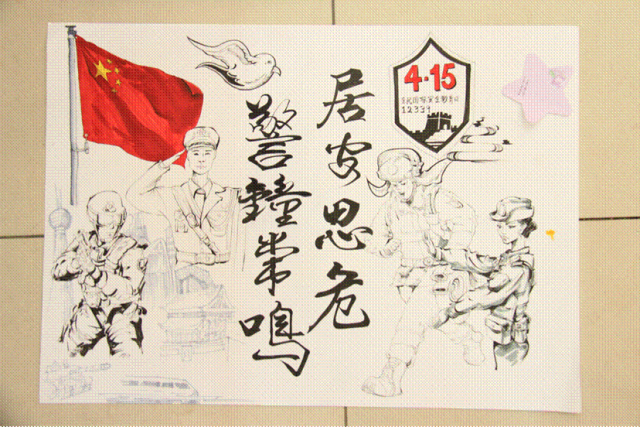 居安思危
警鐘常鸣
4·15
全民国家安全教育日
12339